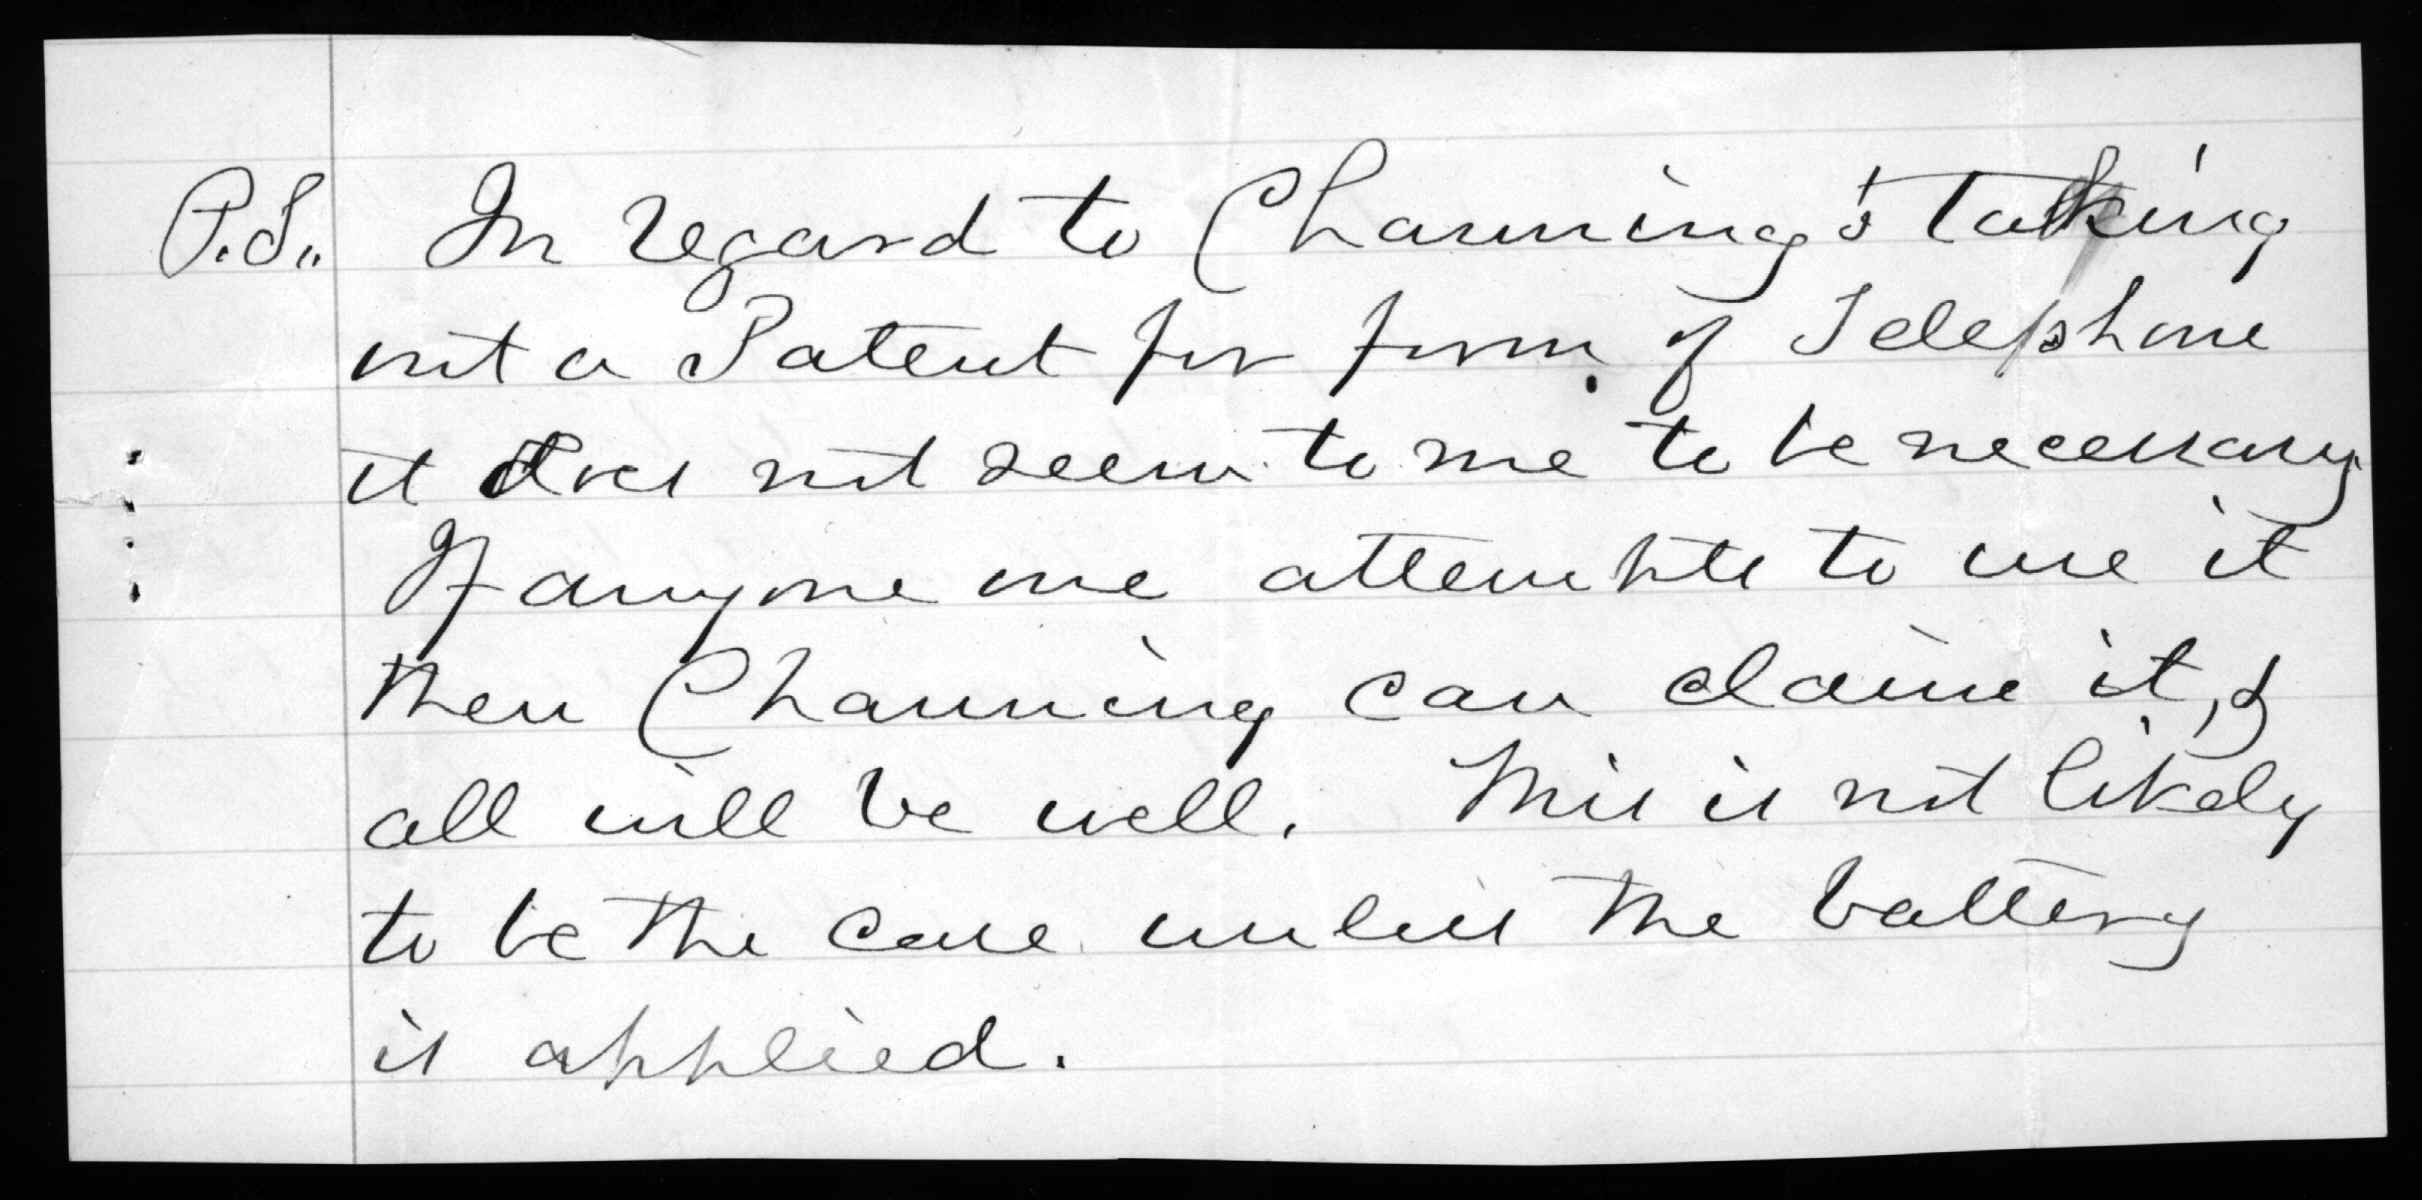 P.S. In regard to Channing's taking
out a Patent for form of Telephone
it does not seem to me to be necessary.
If anyone one attempts to use it
then Channing can claim it, &
all will be well. This is not likely
to be the case unless the battery
is applied.